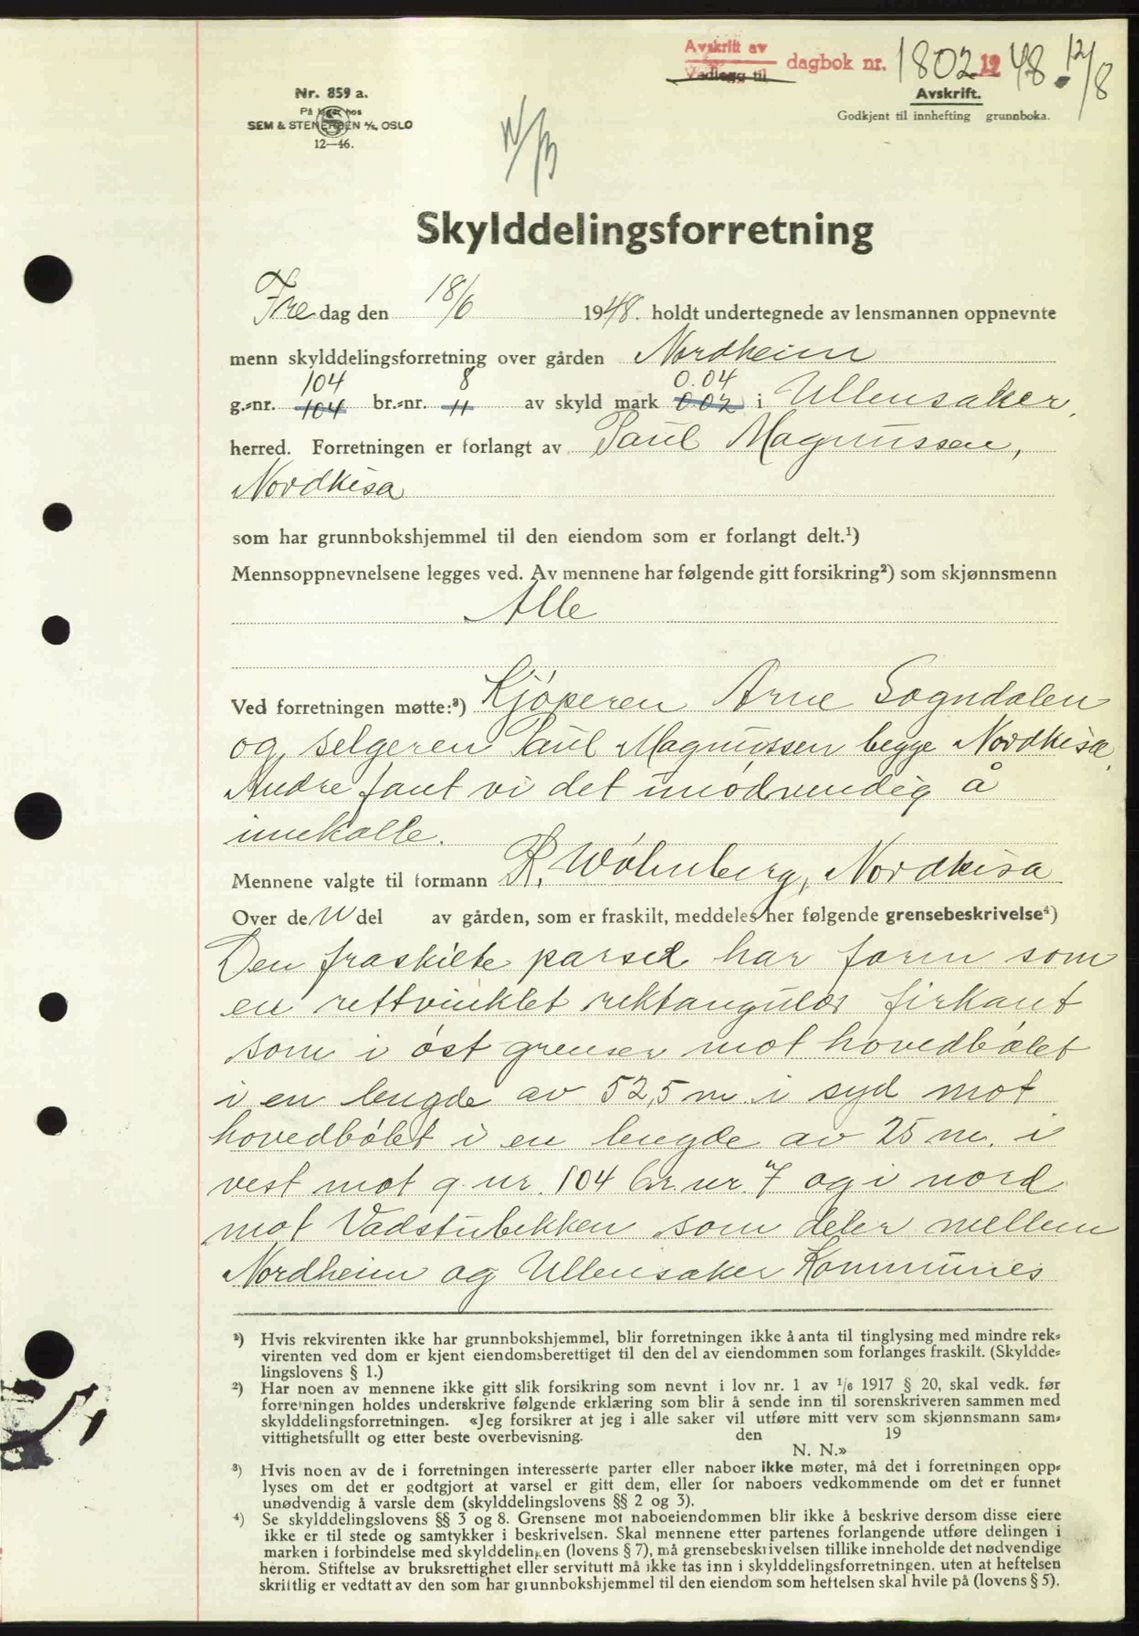 Avskrift av
Vedlegg til
dagbok nr. 1802 1948. 12/8
Avskrift.
Godkjent til innhefting grunnboka.
Nr. 859 a.
På lager hos
SEM & STENERSEN A/S, OSLO
12—46.
Skylddelingsforretning
Fre dag den 18/6 1948. holdt undertegnede av lensmannen oppnevnte
menn skylddelingsforretning over gården Nordheim
104 8 0.04
g.-nr. 104 br.-nr. 11 av skyld mark 0.02 i Ullensaker
herred. Forretningen er forlangt av Paul Magnussen,
Nordkisa
som har grunnbokshjemmel til den eiendom som er forlangt delt.¹)
Mennsoppnevnelsene legges ved. Av mennene har følgende gitt forsikring²) som skjønnsmenn
Alle
Ved forretningen møtte:³) Kjøperen Arne Sogndalen
og selgeren Paul Magnussen begge Nordkisa.
Andre fant vi det unødvendig å
innkalle.
Mennene valgte til formann R. Wølnberg, Nordkisa
Over de n del av gården, som er fraskilt, meddeles her følgende grensebeskrivelse⁴)
Den fraskilte parsel har form som
en rettvinklet rektangulær firkant
som i øst grenser mot hovedbølet
i en lengde av 52,5 m. i syd mot
hovedbølet i en lengde av 25 m. i
vest mot g. nr. 104 br. nr. 7 og i nord
mot Vadstubekken som deler mellem
Nordheim og Ullensaker Kommunes
¹) Hvis rekvirenten ikke har grunnbokshjemmel, blir forretningen ikke å anta til tinglysing med mindre rek-
virenten ved dom er kjent eiendomsberettiget til den del av eiendommen som forlanges fraskilt. (Skyldde-
lingslovens § 1.)
²) Har noen av mennene ikke gitt slik forsikring som nevnt i lov nr. 1 av 1/6 1917 § 20, skal vedk. før
forretningen holdes underskrive følgende erklæring som blir å sende inn til sorenskriveren sammen med
skylddelingsforretningen. «Jeg forsikrer at jeg i alle saker vil utføre mitt verv som skjønnsmann sam-
vittighetsfullt og etter beste overbevisning. den 19
N. N.»
³) Hvis noen av de i forretningen interesserte parter eller naboer ikke møter, må det i forretningen opp-
lyses om det er godtgjort at varsel er gitt dem, eller for naboers vedkommende om det er funnet
unødvendig å varsle dem (skylddelingslovens §§ 2 og 3).
⁴) Se skylddelingslovens §§ 3 og 8. Grensene mot naboeiendommen blir ikke å beskrive dersom disse eiere
ikke er til stede og samtykker i beskrivelsen. Skal mennene etter partenes forlangende utføre delingen i
marken i forbindelse med skylddelingen (lovens § 7), må grensebeskrivelsen tillike inneholde det nødvendige
herom. Stiftelse av bruksrettighet eller servitutt må ikke tas inn i skylddelingsforretningen, uten at heftelsen
skriftlig er vedtatt av den som har grunnbokshjemmel til den eiendom som heftelsen skal hvile på (lovens § 5).